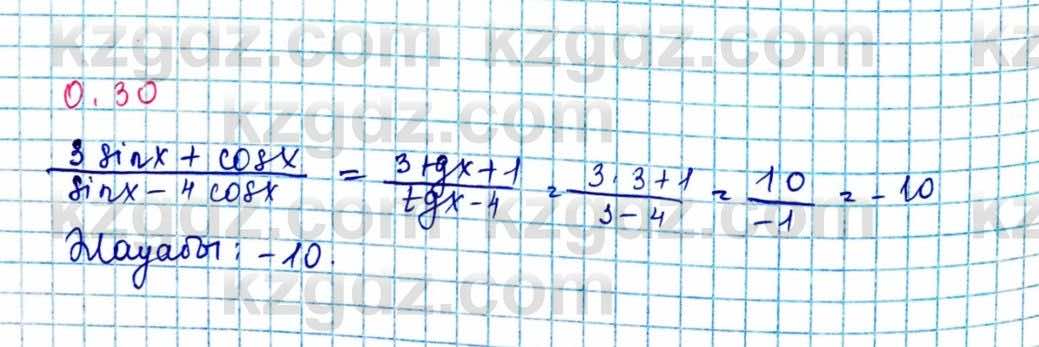 kzgdz.com kzgdz.com kz
0.30
kzgdz.com
(3 sinx + cosx)/(sinx - 4 cosx) = (3 tgx + 1)/(tgx - 4) = (3 · 3 + 1)/(3 - 4) = 10/-1 = -10
Жауабы: -10.
kzgdz.com